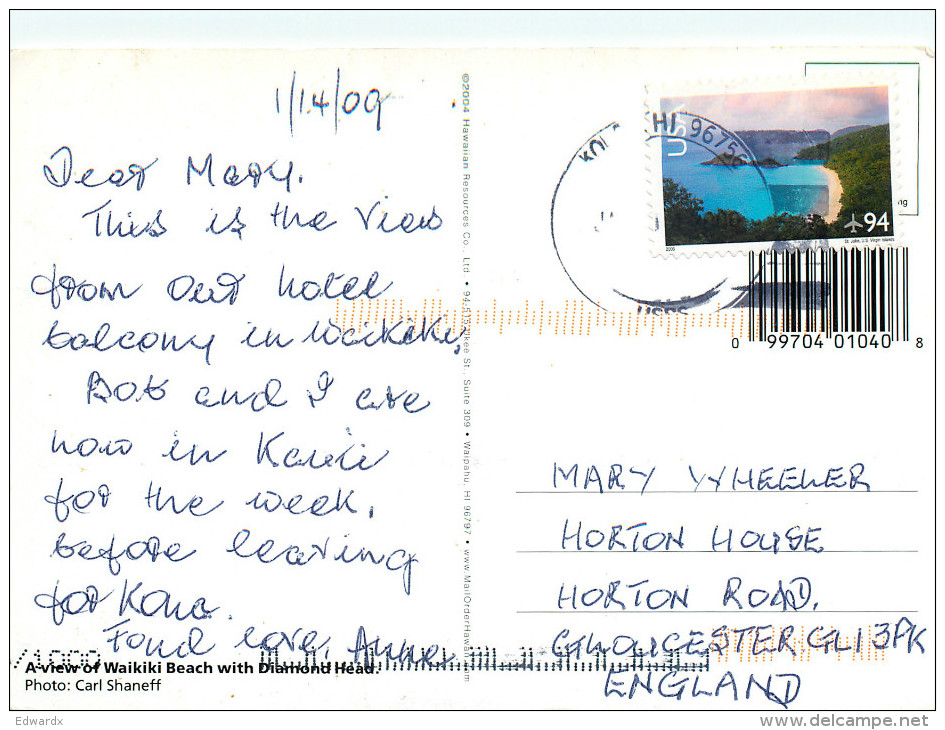 1/14/09
Dear Mary.
This is the View
from our hotel
balcony in Waikiki,
Bob and I are
now in Kauii
for the week,
before leaving
for Kona.
Fond love, Anne
A view of Waikiki Beach with Diamond Head.
Photo: Carl Shaneff
©2004 Hawaiian Resources Co. Ltd • 94-515 Ukee St., Suite 309 • Waipahu, HI 96797 • www.MailOrderHawaii.com
HI 96756
USPS
USA
94
2008
St. John, U.S. Virgin Islands
0 99704 01040 8
MARY WHEELER
HORTON HOUSE
HORTON ROAD,
GLOUCESTER GL1 3PK
ENGLAND
Edwardx
delcampe.net